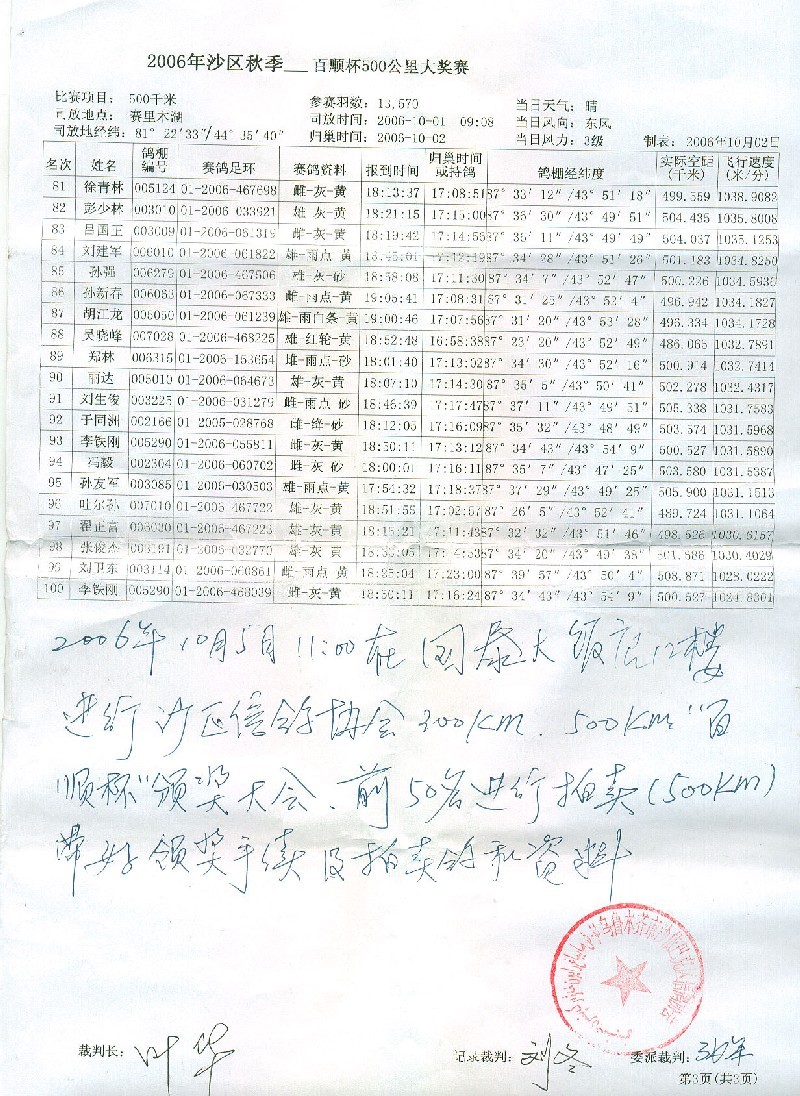 2006年沙区秋季___百顺杯500公里大奖赛
比赛项目: 500千米 参赛羽数: 13,570 当日天气: 晴
司放地点: 赛里木湖 司放时间: 2006-10-01 09:08 当日风向: 东风
司放地经纬: 81° 22′33″/44° 35′40″ 归巢时间: 2006-10-02 当日风力: 3级 制表: 2006年10月02日
名次 姓名 鸽棚编号 赛鸽足环 赛鸽资料 报到时间 归巢时间或持鸽 鸽棚经纬度 实际空距(千米) 飞行速度(米/分)
81 徐青林 005124 01-2006-467698 雌-灰-黄 18:13:37 17:08:51 87° 33′ 12″ /43° 51′ 18″ 499.559 1038.9082
82 彭少林 003010 01-2006-033921 雄-灰-黄 18:21:15 17:15:00 87° 36′ 30″ /43° 49′ 51″ 504.435 1035.8008
83 吕国正 003009 01-2006-061319 雌-灰-黄 18:19:42 17:14:56 87° 35′ 11″ /43° 49′ 49″ 504.037 1035.1253
84 刘建军 006010 01-2006-061822 雄-雨点 黄 17:12:19 87° 34′ 28″ /43° 51′ 26″ 501.183 1034.8250
85 孙强 006279 01-2006-467506 雄-灰-砂 18:58:08 17:11:30 87° 34′ 7″ /43° 52′ 47″ 500.226 1034.5935
86 孙新春 006063 01-2006-067333 雌-雨点-黄 19:05:41 17:08:31 87° 31′ 25″ /43° 52′ 4″ 496.942 1034.1827
87 胡江龙 005050 01-2006-061239 雄-雨白条-黄 19:00:46 17:07:56 87° 31′ 20″ /43° 53′ 28″ 496.334 1034.1728
88 吴晓峰 007028 01-2006-468225 雄-红轮-黄 18:52:48 16:58:38 87° 23′ 20″ /43° 52′ 49″ 486.065 1032.7891
89 郑林 006315 01-2006-153654 雄-雨点-砂 18:01:40 17:13:02 87° 34′ 30″ /43° 52′ 16″ 500.914 1032.7414
90 丽达 005010 01-2006-064673 雄-灰-黄 18:07:10 17:14:30 87° 35′ 5″ /43° 50′ 41″ 502.278 1032.4317
91 刘生俊 003225 01-2006-031279 雌-雨点 砂 18:46:39 17:17:47 87° 37′ 11″ /43° 49′ 51″ 505.338 1031.7583
92 于同洲 002166 01-2005-028768 雌-绛-砂 18:12:05 17:16:09 87° 35′ 32″ /43° 48′ 49″ 503.574 1031.5968
93 李铁刚 005290 01-2006-056811 雌-灰-黄 18:50:11 17:13:12 87° 34′ 43″ /43° 54′ 9″ 500.527 1031.5890
94 冯毅 002304 01-2006-060702 雌-灰 砂 18:00:01 17:16:11 87° 35′ 7″ /43° 47′ 25″ 503.580 1031.5387
95 孙友军 003085 01-2006-030503 雄-雨点-黄 17:54:32 17:18:37 87° 37′ 29″ /43° 49′ 25″ 505.900 1031.1513
96 吐尔孙 007010 01-2006-467722 雌-灰-黄 18:51:55 17:02:57 87° 26′ 5″ /43° 52′ 41″ 489.724 1031.1064
97 翟正富 01-2006-467223 雄-灰-黄 87° 32′ 32″ /43° 51′ 46″ 498.526
98 张俊杰 01-2006-032770 雄-灰 黄 87° 34′ 20″ /43° 49′ 38″
99 刘卫东 003114 01-2006-060861 雌-雨点 黄 17:23:00 87° 39′ 57″ /43° 50′ 4″ 508.871 1028.0222
100 李铁刚 005290 01-2006-468039 雌-灰-黄 18:50:11 17:16:24 87° 34′ 43″ /43° 54′ 9″ 500.527
2006年10月5日11:00在国泰大饭店12楼
进行沙区信鸽协会300KM、500KM"百
顺杯"颁奖大会、前50名进行拍卖(500KM)
带好领奖手续及拍卖鸽和资料
裁判长: 叶华 记录裁判: 刘冬 委派裁判:
第3页(共3页)